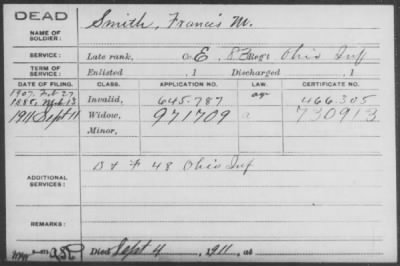 DEAD
NAME OF SOLDIER: Smith, Francis M.
SERVICE: Late rank, Co. E, 83 Reg't Ohio Inf
TERM OF SERVICE: Enlisted , 1 Discharged , 1
DATE OF FILING. CLASS. APPLICATION NO. LAW. CERTIFICATE NO.
1907 Feb 27 age
188 13 Invalid, 645.787 466.305
1911 Sept 11 Widow, 971709 a 730913
Minor,
ADDITIONAL SERVICES: D & F 48 Ohio Inf
REMARKS:
Died Sept 4, 1911, at